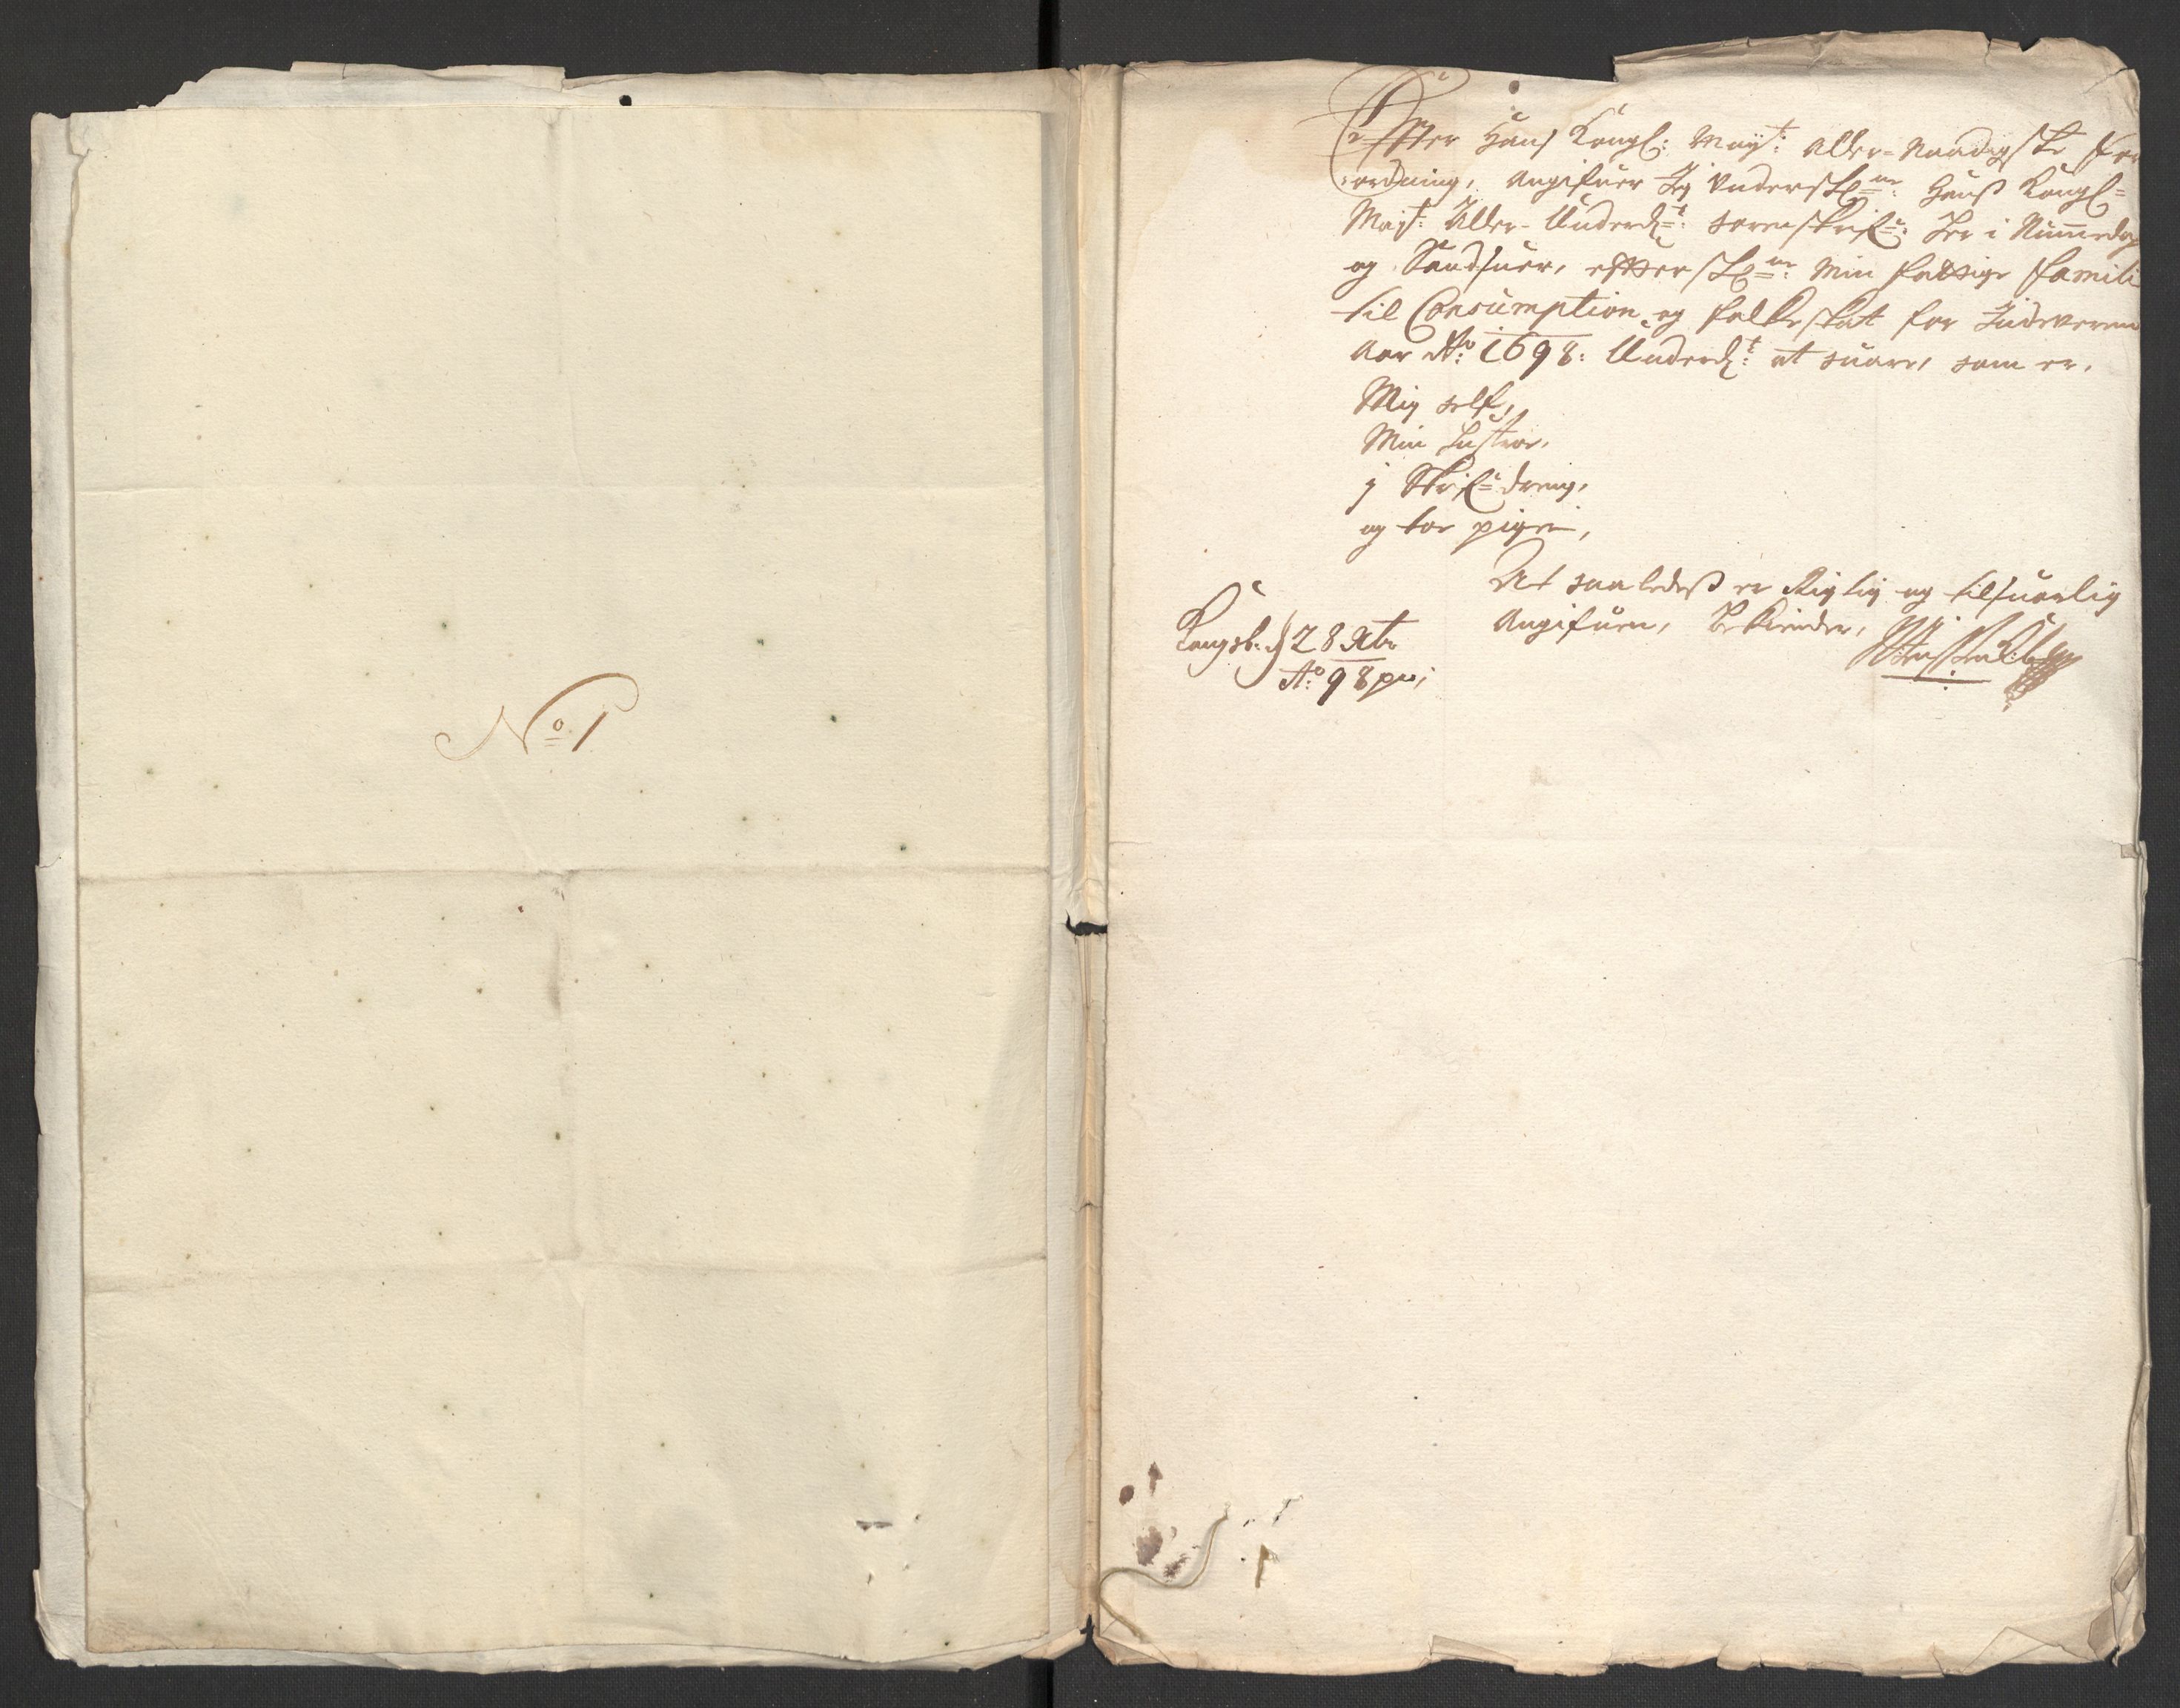 No 1
Effter Hans Kongl: Mayt: Aller-Naadigste for
ordning, Angifuer Jeg Underskr=ne: Hanß Kongl=
Mayt: Aller-Underd=t: Sorenskrif=r: Her i Nummedag
og Sandsuer, effterskr=ne: Min fattige famili
til Consumption og folkeskat for Indeverend
Aar Ao: 1698: Underd=t: at suare, som er.
Mig self,
Min hustroe,
j Skrif=r dreng,
og toe piger,
At saaledeß er Rigtig og tilforlig
Angifuen, Bekiender,
Kongsb: d 28 Xbr
Ao: 98